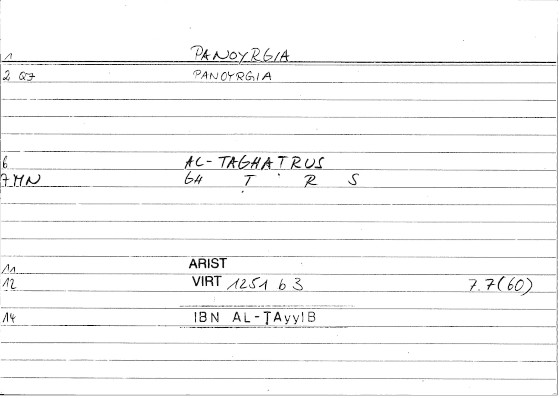 1 PANOYRGIA
2 QJ PANOYRGIA
6 AL-TAGHAṬRUS
7 MN GH Ṭ R S
11 ARIST
12 VIRT 1251 b 3 7.7(60)
14 IBN AL-ṬAyyIB